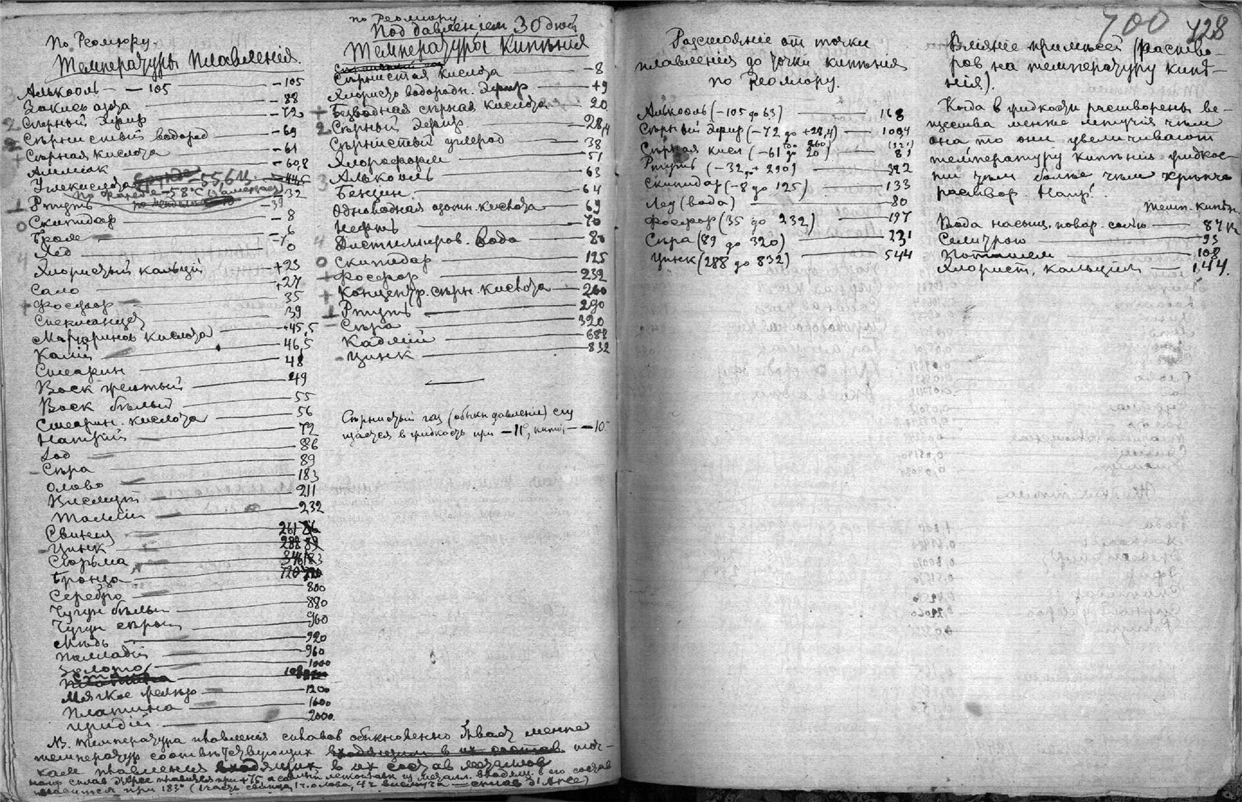 По Реомюру.
Температуры плавленія.
Алькооль — -105 — -105
Закись азота — -88
Сѣрный Эфир — -72
Сѣрнистый водород — -69
Сѣрная кислота — -61
Амміак — -60,8
Углекислота
Ртуть — -32
-39
Скипидар — -8
Бром — -6
Лед — 0
Хлористый кальцій — +23
Сало — +27
Фосфор — 35
Спермацет — 39
Маргаринов. кислота — +45,5
Калій — 46,5
Стеарин — 48
Воск желтый — 49
Воск бѣлый — 55
Стеарин. кислота — 56
Натрій — 72
Іод — 86
Сѣра — 89
Олово — 183
Висмут — 211
Таллій — 232
Свинец — 261
Цинк — 288
Сюрьма — 346
Бронза — 720
Серебро — 800
Чугун бѣлый — 880
Чугун сѣрый — 960
Мѣдь — 920
Палладій — 960
Золото — 1000
Мягкое желѣзо — 1200
Платина — 1600
Иридій — 2000
NB. Температура плавленья сплавов обыкновенно бывает менѣе
температур соотвѣтствующих входящим в их состав точ-
кам плавления входящих в их состав металлов
по Реомюру
Под давленіем 30 дюй
Температуры Кипѣнія
Сѣрнистая кислота — -8
Хлористо водородн. Эфир — +9
Безводная сѣрная кислота — 20
Сѣрный Эфир — 28,4
Сѣрнистый углерод — 38
Хлороформ — 51
Алькооль — 63
Бензин — 64
Одноводная азотн. кислота — 69
Нефть — 70
Дистиллиров. вода — 80
Скипидар — 125
Фосфор — 232
Концентр. сѣрн. кислота — 260
Ртуть — 290
Сѣра — 320
Кадмій — 688
Цинк — 832
Сѣрнистый газ (обыкн давленіе) сгу
щается в жидкость при -11°, кипит — -10°
700 428
Разстояние от точки
плавления до точки кипѣния
по Реомюру.
Алькооль (-105 до 63) — 168
Сѣрный Эфир (-72 до +28,4) — 100,4
Сѣрная кисл (-61 до 20) — 81
до 260) (321)
Ртуть (-32 до 290) — 322
Скипидар (-8 до 125) — 133
Лед (вода) — 80
Фосфор (35 до 232) — 197
Сѣра (89 до 320) — 231
Цинк (288 до 832) — 544
Влияние примѣсей (раство-
ров на температуру кипѣ-
нія).
Когда в жидкости растворены ве-
щества менѣе летучія чѣм
она то они увеличивают
температуру кипѣнія жидкос-
ти тѣм болѣе чѣм крѣпче
раствор. Напр.
Темп. кипѣн.
Вода насыщ. повар. солью — 87
Селитрою — 93
Поташем — 108
Хлорист. кальціем — 144